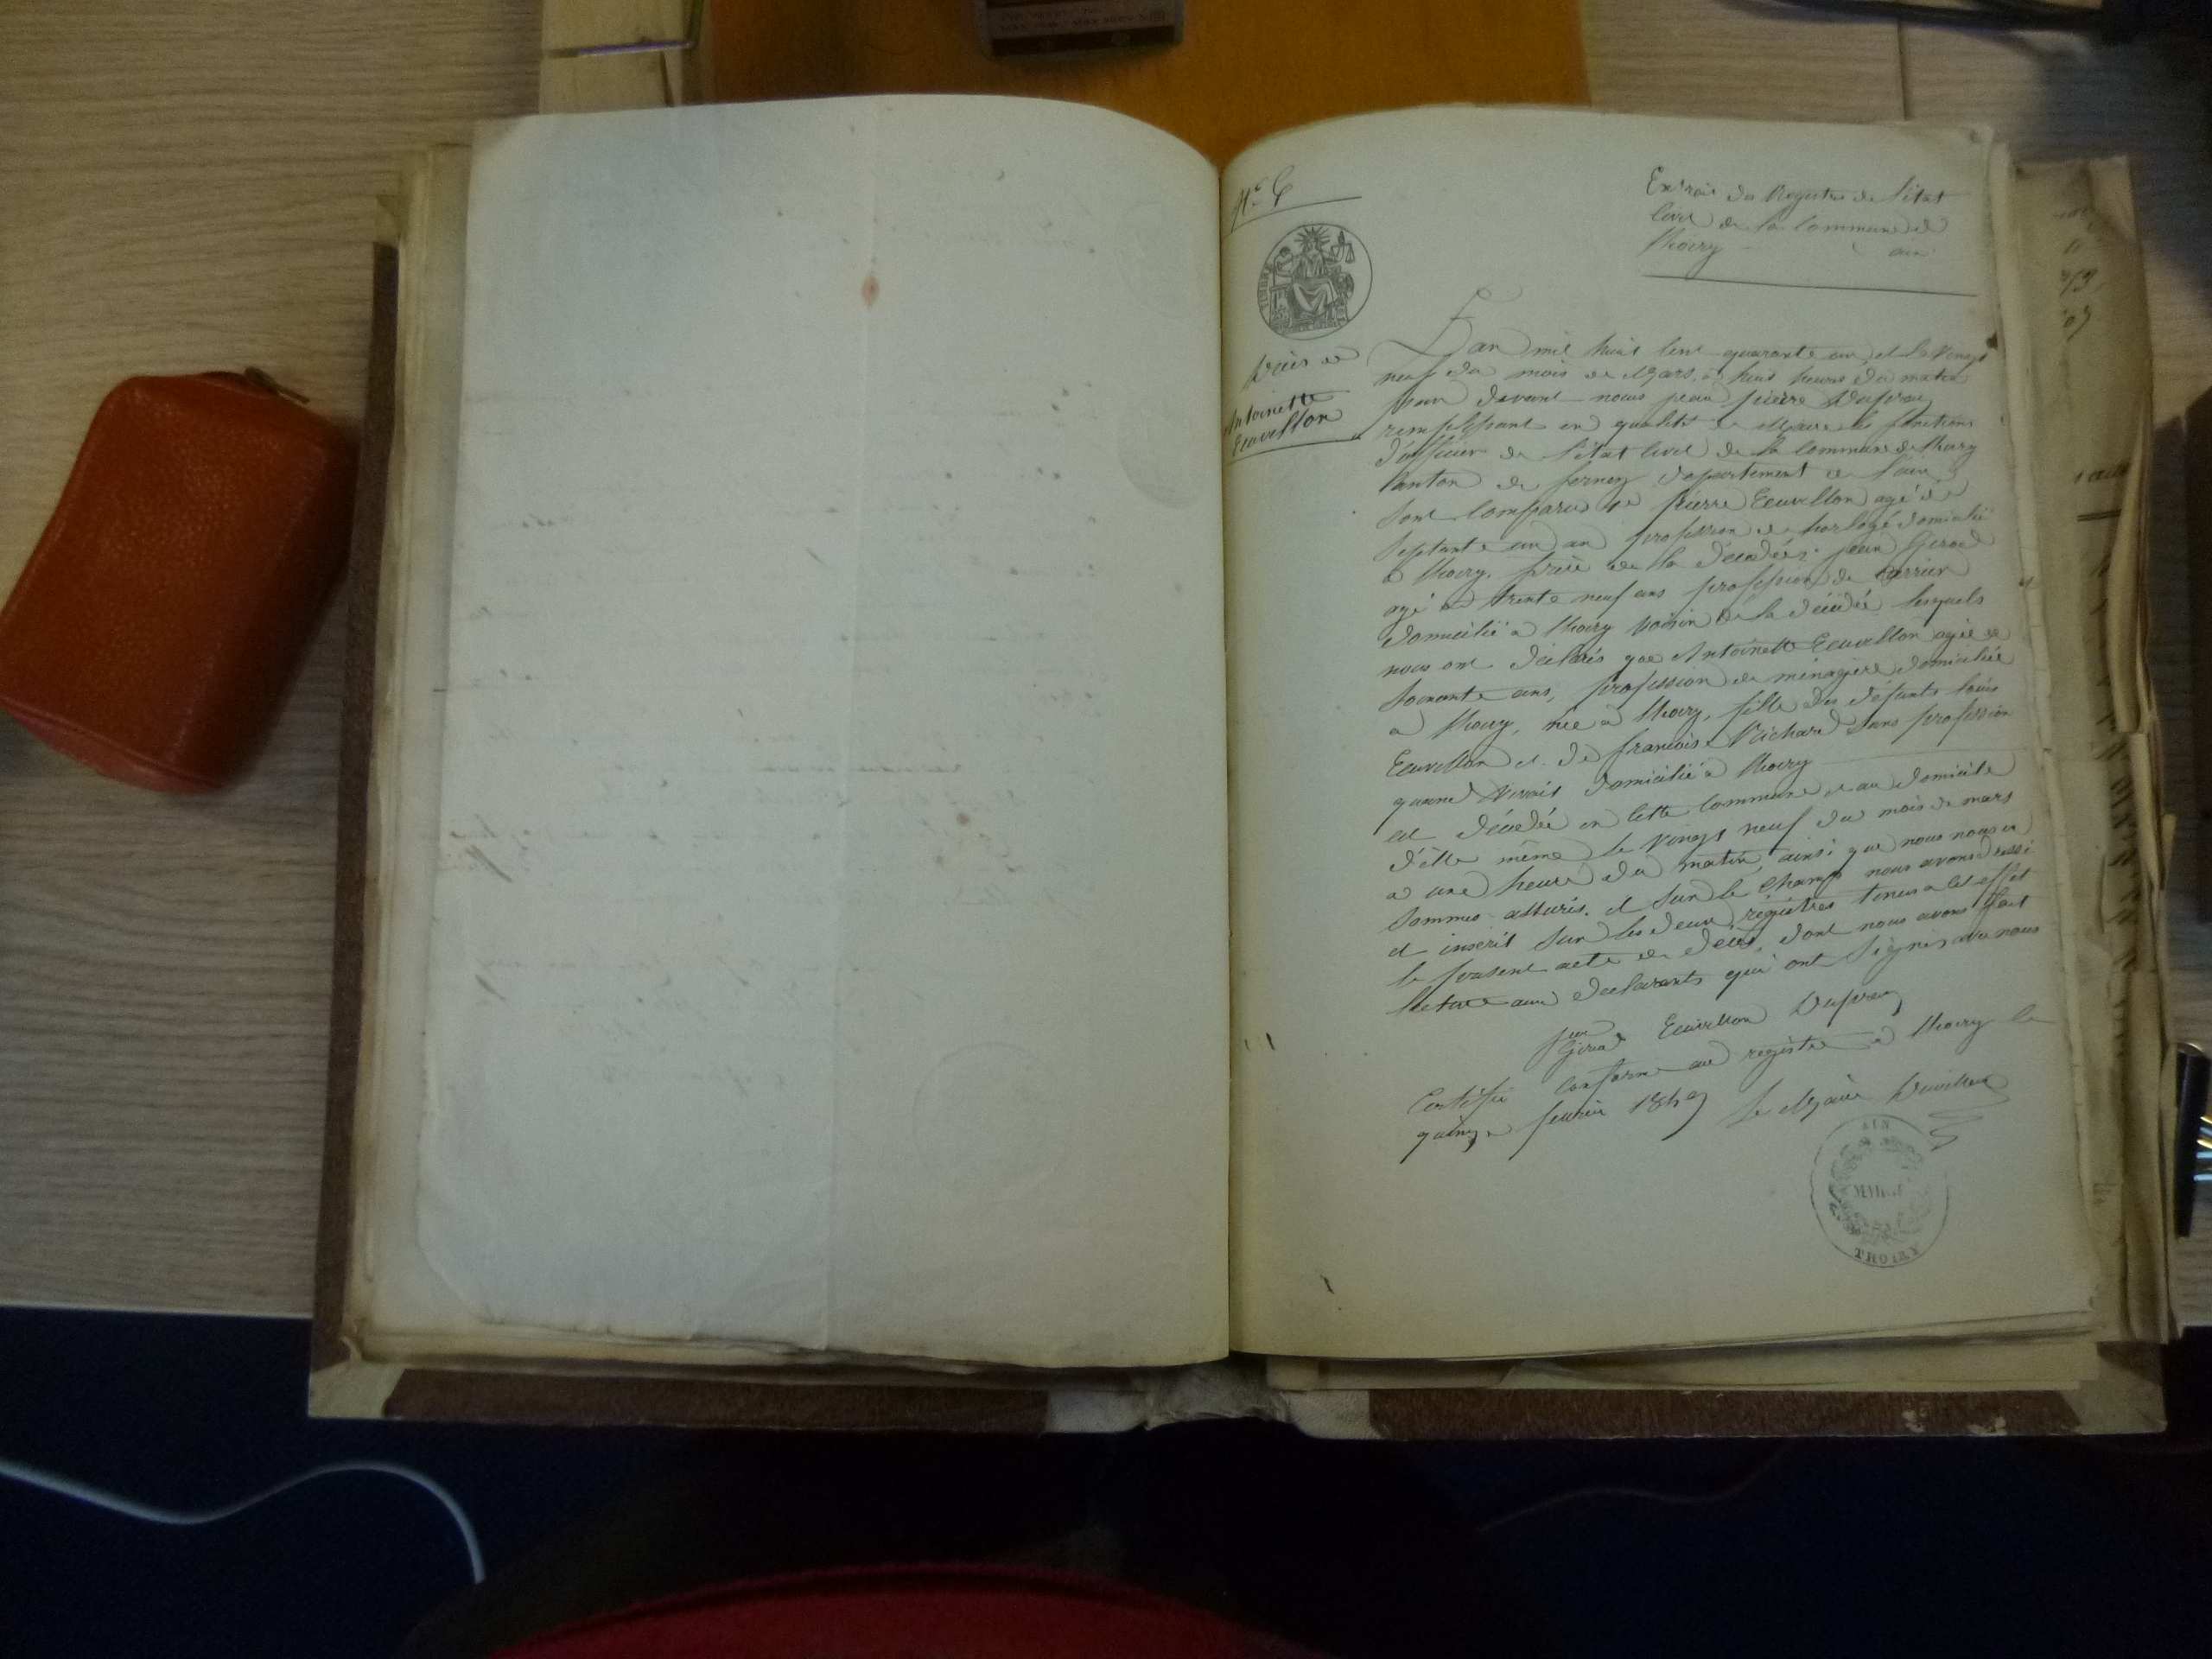 Extrait du Registre de l'état
Civil de la Commune de
Thoiry ain
TIMBRE
Décès de
Antoinette
Ecuvillon
L'an mil huit cent quarante un et le vingt
neuf du mois de Mars, à huit heures du matin
par devant nous jean pierre Dupraz
remplissant en qualité de Maire les fonctions
d'officier de l'état civil de la Commune de Thoiry
Canton de ferney département de l'ain
Sont Comparus Pierre Ecuvillon agé de
Septante un an profession de horlogé domicilié
à Thoiry, frère de la décédée; jean Girod
agé de trente neuf ans profession de
domicilié à Thoiry voisin de la décédée lesquels
nous ont déclarés que Antoinette Ecuvillon agée de
Soixante ans, profession de ménagère domiciliée
à Thoiry, née à Thoiry, fille des défunts louis
Ecuvillon et de françoise Richard sans profession
quand vivait domicilié à Thoiry
est décédée en cette Commune et au domicile
d'elle même le vingt neuf du mois de mars
à une heure du matin, ainsi que nous nous en
Sommes assurés. et Sur le Champ nous avons dressé
et inscrit Sur les deux régistres tenus a cet effet
le présent acte de décès, dont nous avons fait
lecture aux déclarants qui ont Signés avec nous
jean
Girod Ecuvillon Dupraz
Certifié Conforme au registre à Thoiry le
quinze fevrier 1849 le Maire
AIN
MAIRIE
THOIRY